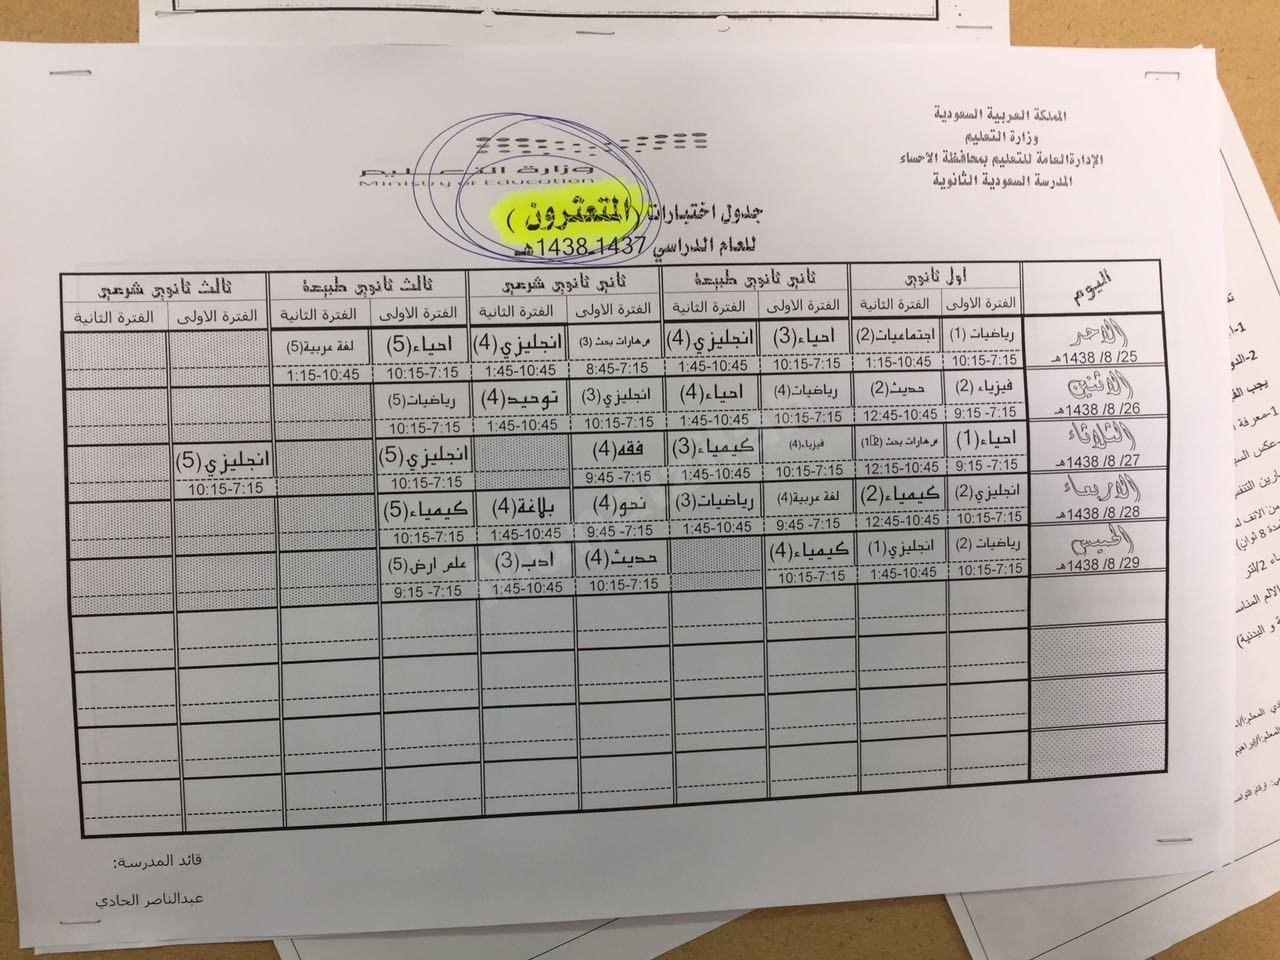 المملكة العربية السعودية
وزارة التعليم
الإدارة العامة للتعليم بمحافظة الاحساء
المدرسة السعودية الثانوية
وزارة التعليم
Ministry of Education
جدول اختبارات (المتعثرون)
للعام الدراسي 1437ـ1438هـ
اليوم | اول ثانوي | ثاني ثانوي طبيعة | ثاني ثانوي شرعي | ثالث ثانوي طبيعة | ثالث ثانوي شرعي
الفترة الاولى | الفترة الثانية | الفترة الاولى | الفترة الثانية | الفترة الاولى | الفترة الثانية | الفترة الاولى | الفترة الثانية | الفترة الاولى | الفترة الثانية
الاحد | رياضيات (1) | اجتماعيات(2) | احياء(3) | انجليزي(4) | مهارات بحث (3) | انجليزي(4) | احياء(5) | لغة عربية(5)
25/ 8/ 1438هـ | 7:15-10:15 | 10:45-1:15 | 7:15-10:15 | 10:45-1:45 | 7:15-8:45 | 10:45-1:45 | 7:15-10:15 | 10:45-1:15
الاثنين | فيزياء (2) | حديث(2) | رياضيات(4) | احياء(4) | انجليزي(3) | توحيد(4) | رياضيات(5)
26/ 8/ 1438هـ | 7:15- 9:15 | 10:45-12:45 | 7:15-10:15 | 10:45-1:45 | 7:15-10:15 | 10:45-1:45 | 7:15-10:15
الثلاثاء | احياء(1) | مهارات بحث (1،2) | فيزياء(4) | كيمياء(3) | فقه(4) | انجليزي(5) | انجليزي(5)
27/ 8/ 1438هـ | 7:15- 9:15 | 10:45-12:15 | 7:15-10:15 | 10:45-1:45 | 7:15- 9:45 | 7:15-10:15 | 7:15-10:15
الاربعاء | انجليزي(2) | كيمياء(2) | لغة عربية(4) | رياضيات(3) | نحو(4) | بلاغة(4) | كيمياء(5)
28/ 8/ 1438هـ | 7:15-10:15 | 10:45-12:45 | 7:15- 9:45 | 10:45-1:45 | 7:15- 9:45 | 10:45-1:45 | 7:15-10:15
الخميس | رياضيات (2) | انجليزي(1) | كيمياء(4) | حديث(4) | ادب(3) | علم ارض(5)
29/ 8/ 1438هـ | 7:15-10:15 | 10:45-1:45 | 7:15-10:15 | 7:15-10:15 | 10:45-1:45 | 7:15- 9:15
قائد المدرسة:
عبدالناصر الحادي
1-
2-
يجب
1-معرفة